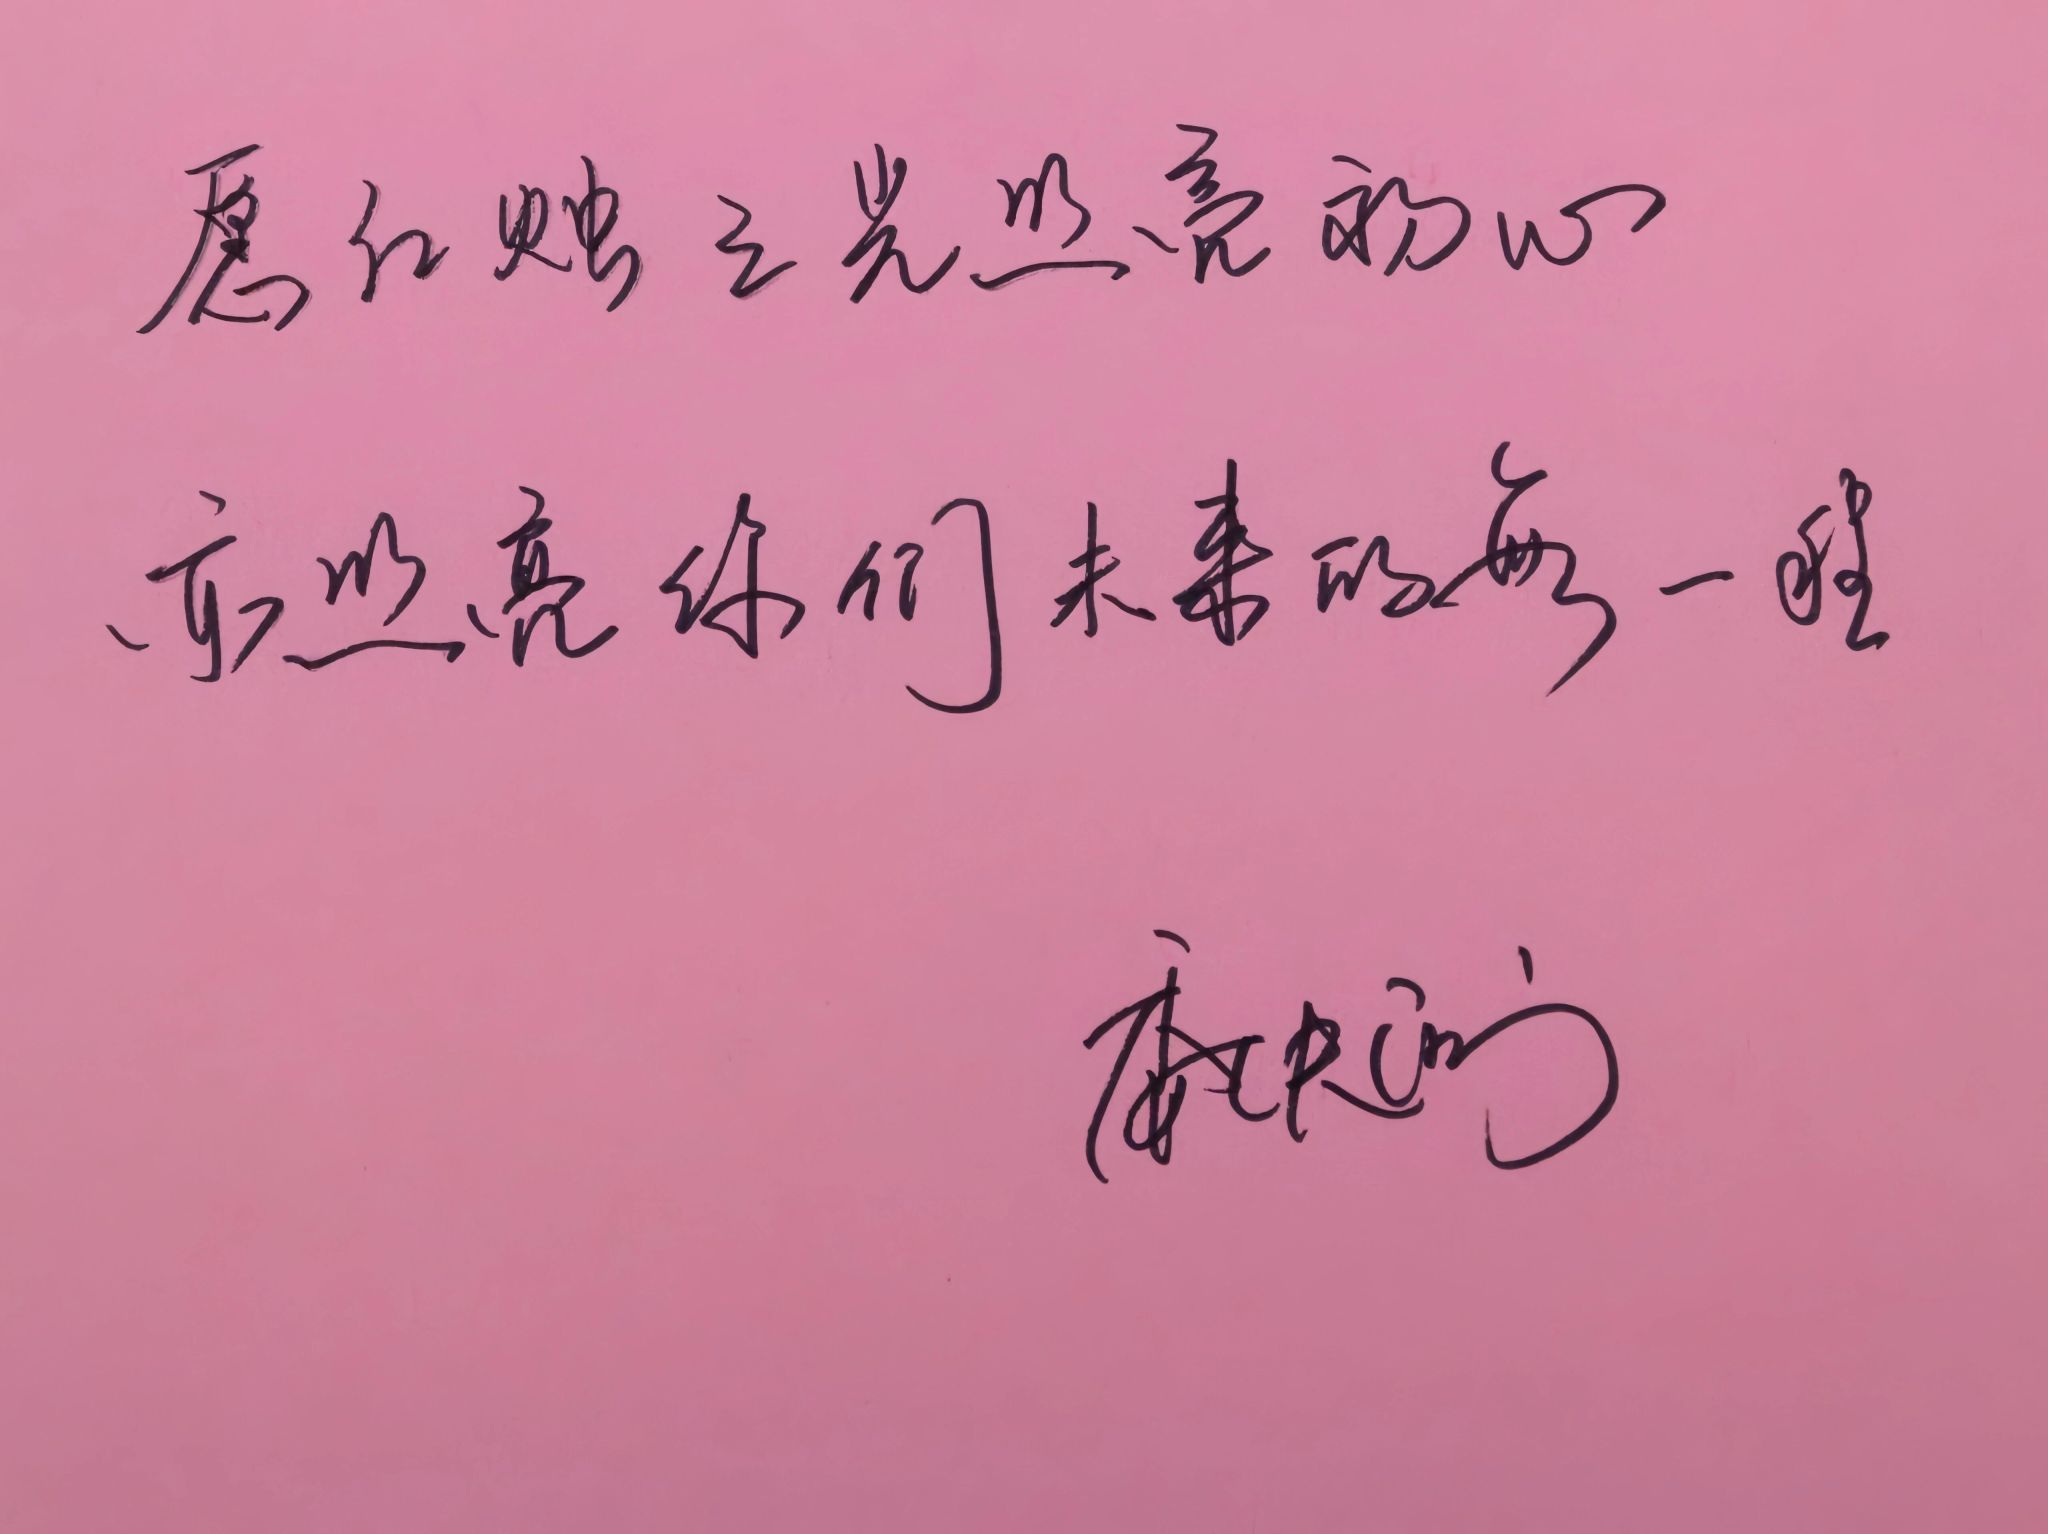 愿红烛之光照亮初心
亦照亮你们未来的每一程